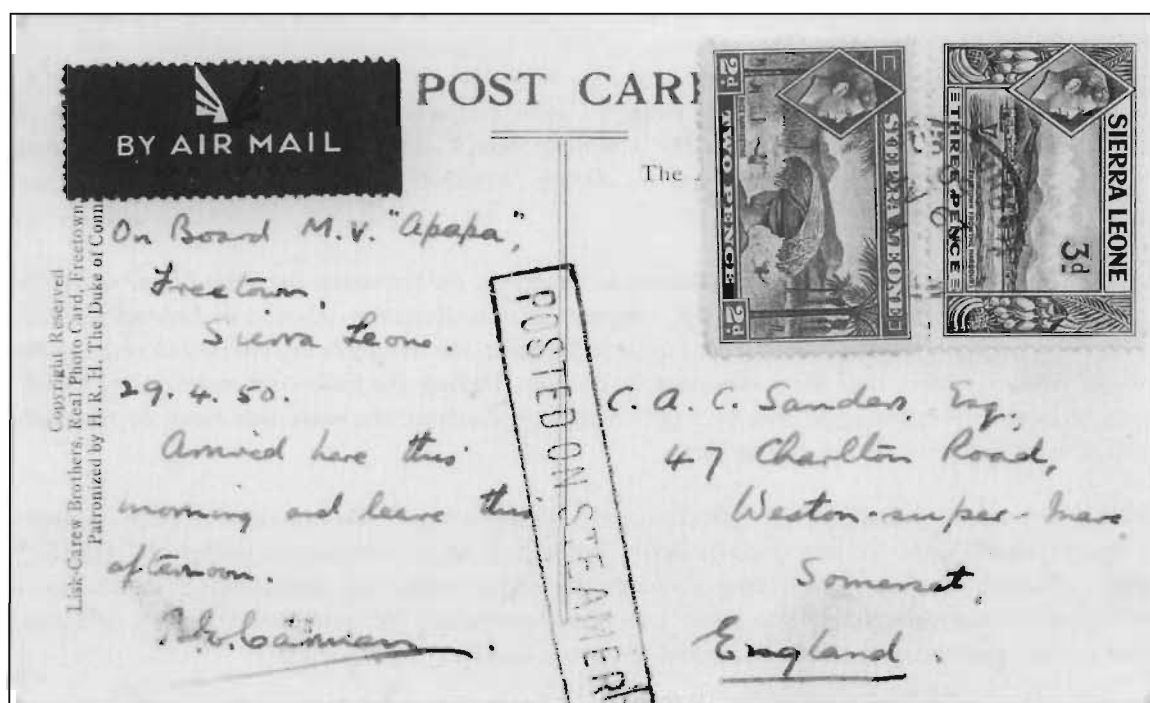 POST CAR
BY AIR MAIL
PAR AVION
The
Copyright Reserved
Lisk-Carew Brothers, Real Photo Card, Freetown
Patronized by H.R.H. The Duke of Conn
On Board M.V. "Apapa",
Freetown,
Sierra Leone
29.4.50.
Arrived here this
morning and leave this
afternoon.
POSTED ON STEAMER
2d
TWO PENCE
2d
SIERRA LEONE
SIERRA LEONE
THREE PENCE
3d
C. A. C. Sanders, Esq,
47 Charlton Road,
Weston-super-Mare
Somerset,
England.